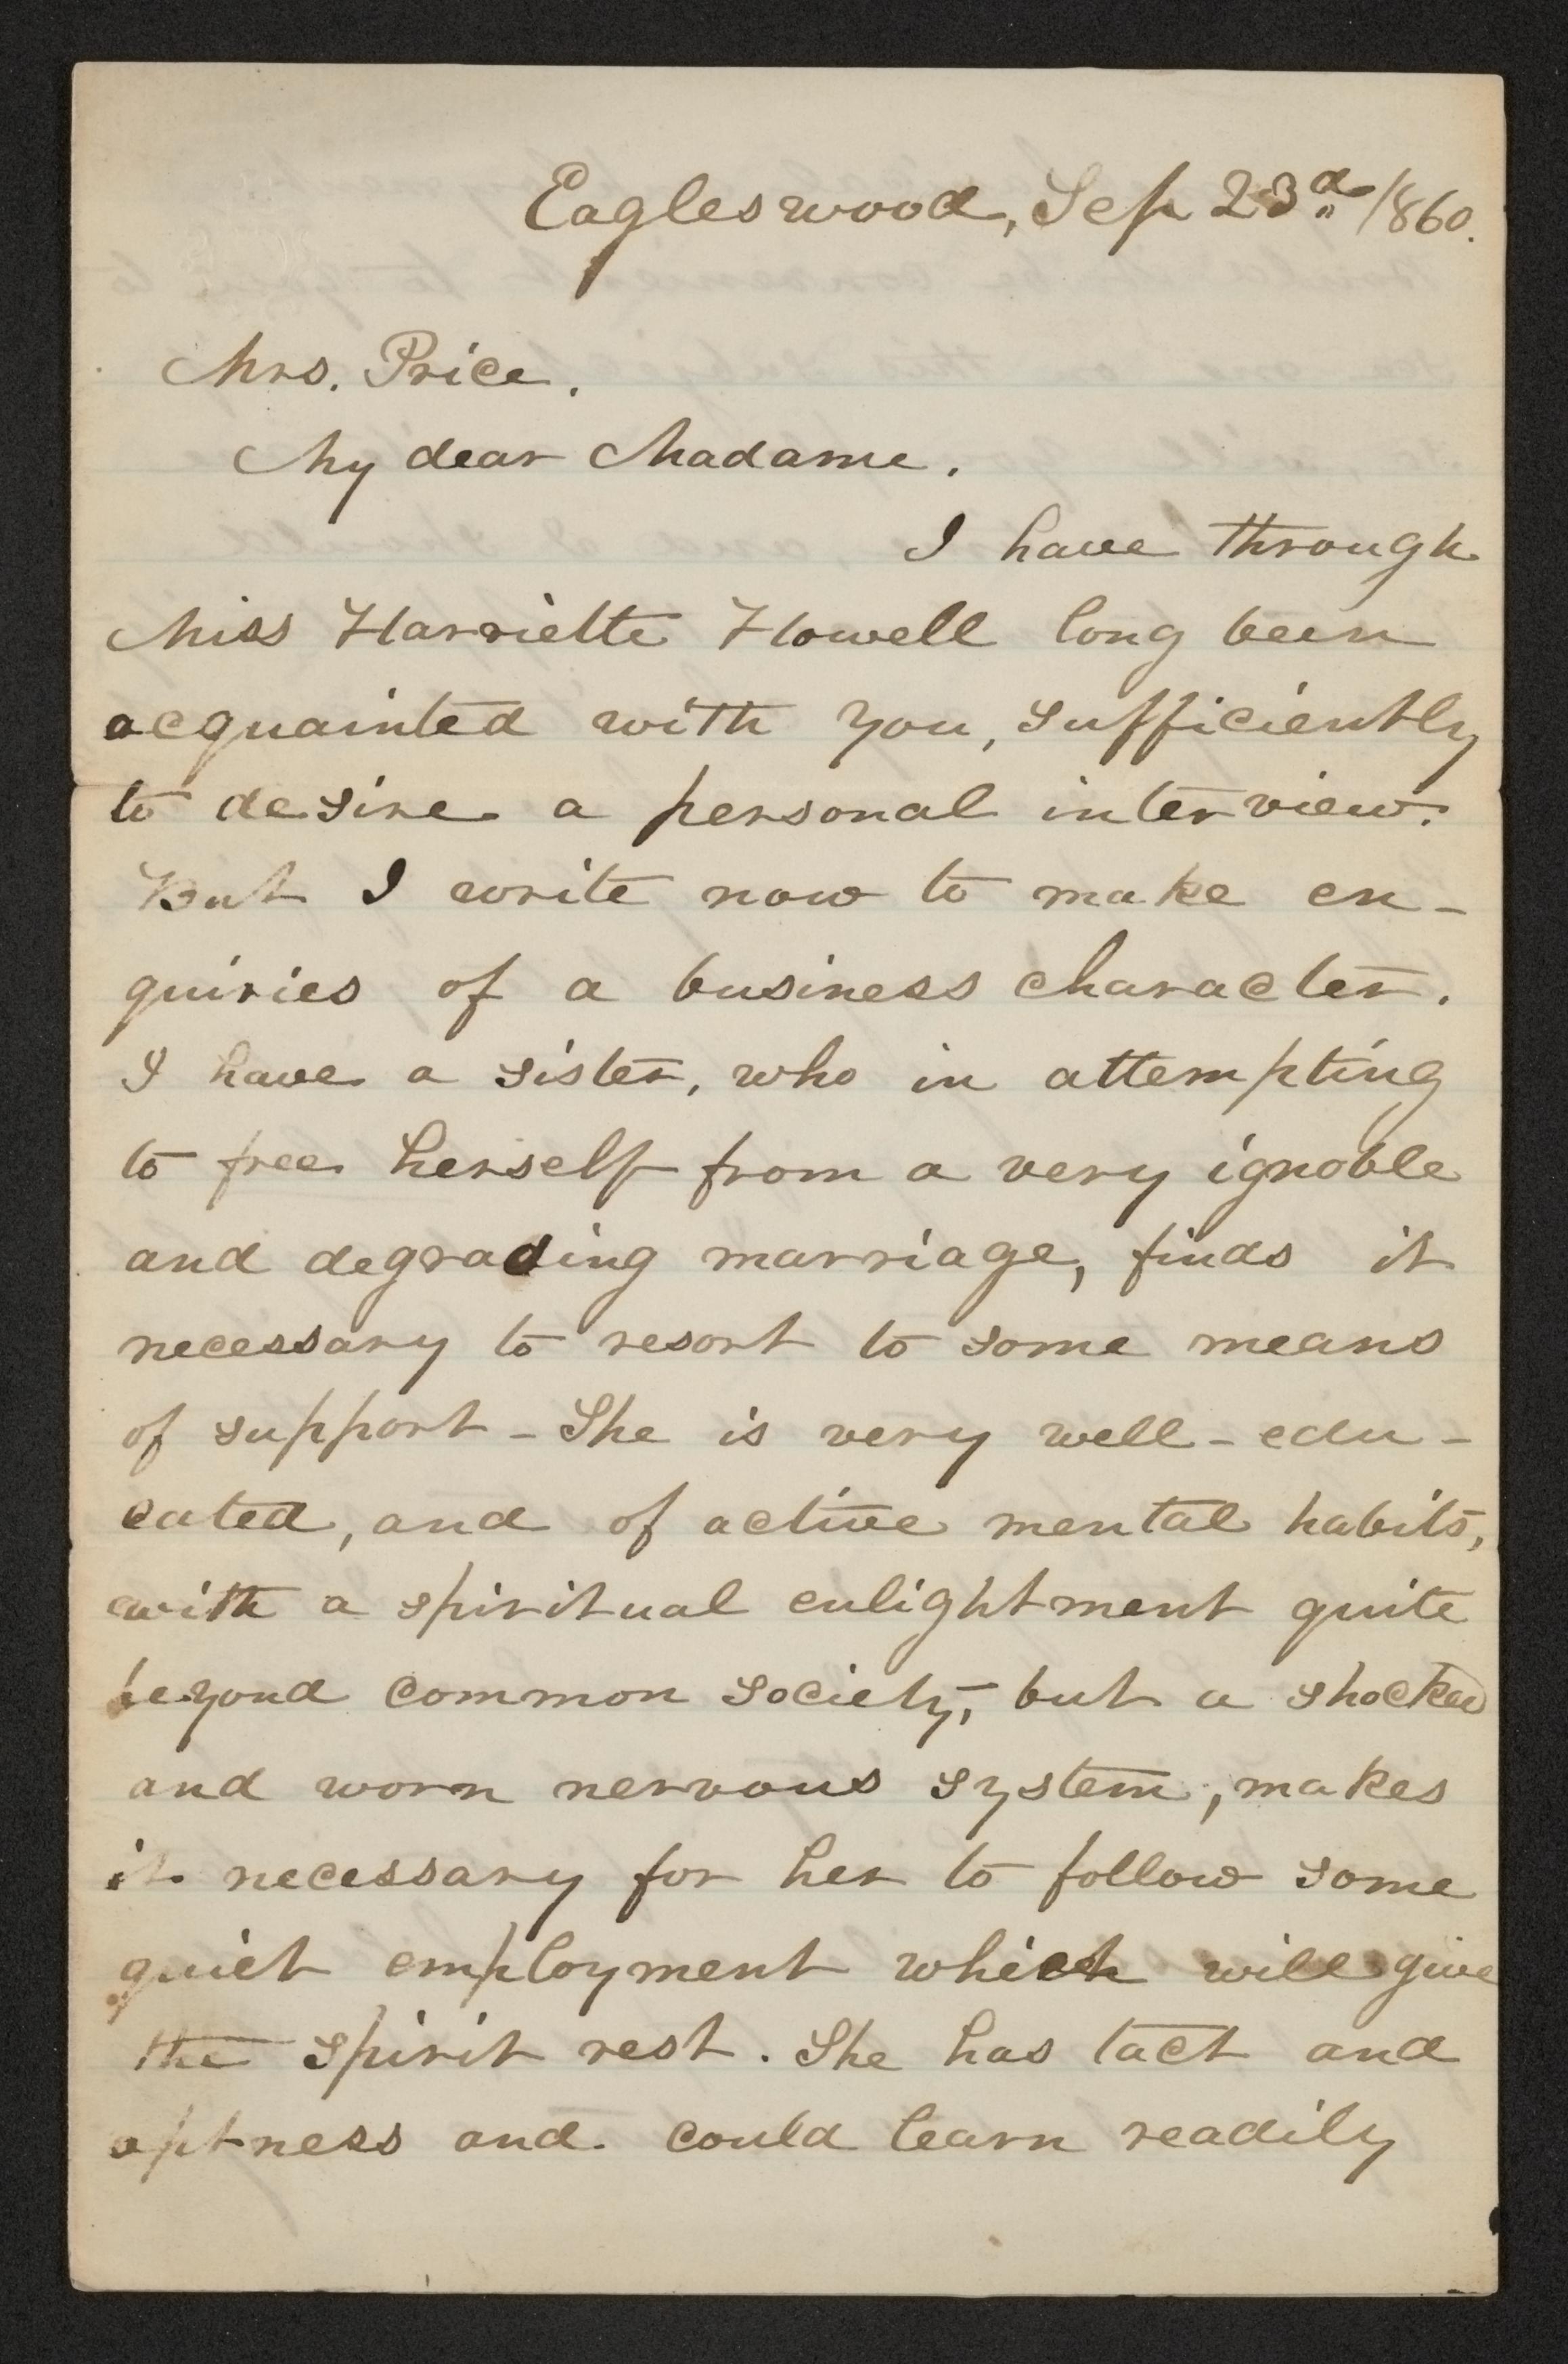 Eagleswood, Sep 23d 1860.
Mrs. Price.
My dear Madame.
I have through
Miss Harriette Howell long been
acquainted with you, sufficiently
to desire a personal interview.
But I write now to make en-
quiries of a business character.
I have a sister, who in attempting
to free herself from a very ignoble
and degrading marriage, finds it
necessary to resort to some means
of support - She is very well-edu-
cated, and of active mental habits,
with a spiritual enlightment quite
beyond common society, but a shocked
and worn nervous system, makes
it necessary for her to follow some
quiet employment which will give
the spirit rest. She has tact and
aptness and could learn readily